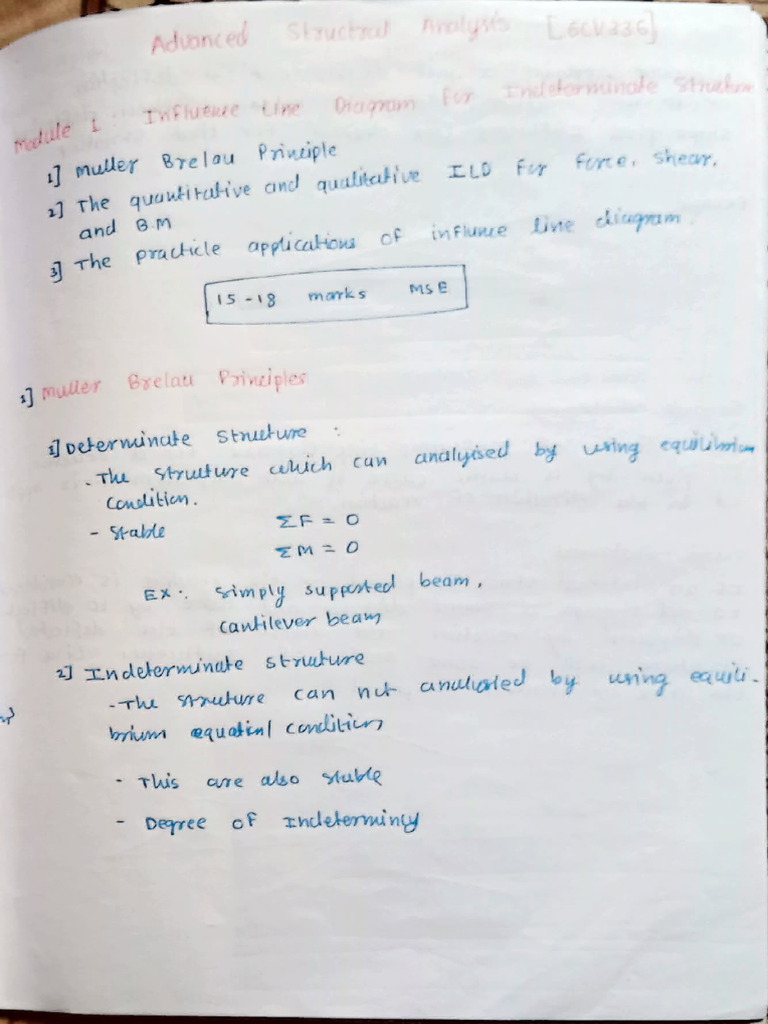 Advanced Structral Analysis [6CV336]
Module 1 Influence Line Diagram for Indeterminate Structure
1] Muller Brelau Principle
2] The quantitative and qualitative ILD for force, shear,
and B.M
3] The practicle applications of influnce line diagram.
15-18 marks MSE
1] Muller Brelau Principles
1] Determinate Structure :
- The structure which can analyised by using equilibrium
condition.
- Stable ΣF = 0
ΣM = 0
EX: simply supported beam,
cantilever beam
2] Indeterminate structure
- The structure can not analysed by using equili-
brium equation/ condition
- This are also stable
- Degree of Indetermincy